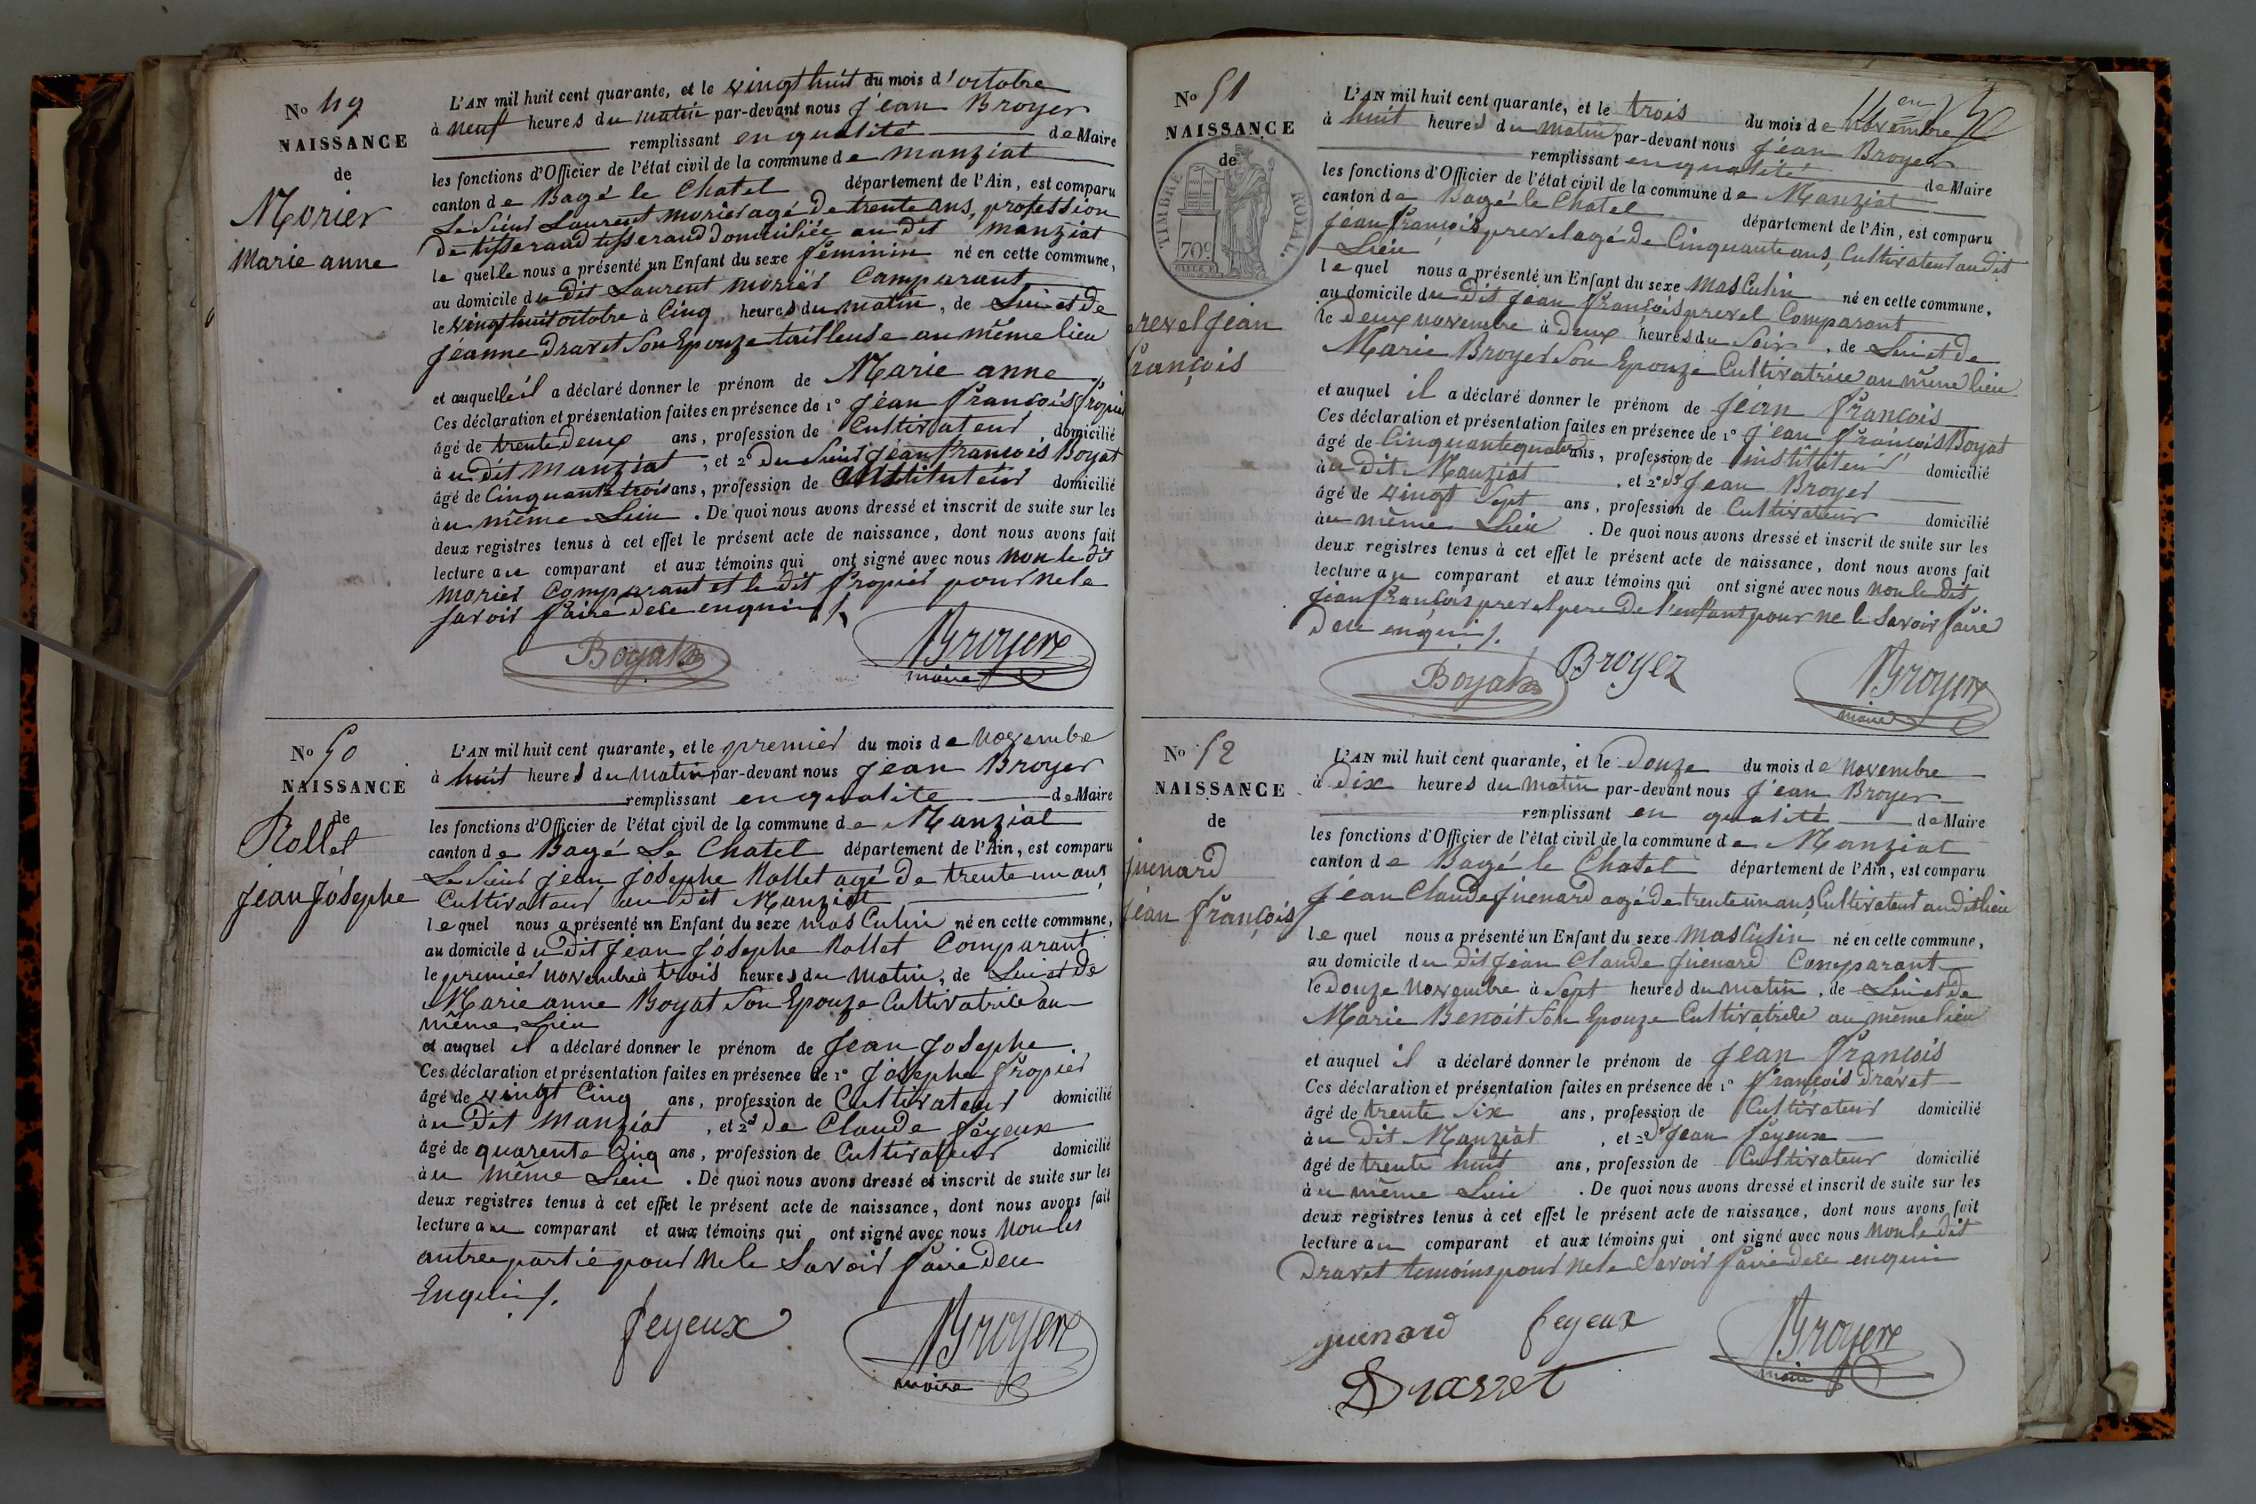 No 49
NAISSANCE
de
Morier
Marie anne
L'AN mil huit cent quarante, et le vingt huit du mois d'octobre
à neuf heures du matin par-devant nous jean Broyer
remplissant en qualité de Maire
les fonctions d'Officier de l'état civil de la commune de manziat
canton de Bagé le Chatel département de l'Ain, est comparu
Le Sieur Laurent morier agé de trente ans, profession
de tisserand tisserand domiciliée au dit manziat
le quelle nous a présenté un Enfant du sexe féminin né en cette commune,
au domicile du dit Laurent morier Comparant
le vingt huit octobre à Cinq heures du matin, de Lui et de
jéanne dravet Son Epouze tailleuse au même lieu
et auquelle il a déclaré donner le prénom de Marie anne
Ces déclaration et présentation faites en présence de 1º jéan françois fropier
âgé de trente deux ans, profession de Cultivateur domicilié
à u dit manziat, et 2º du Sieur jéan francois Boyat
âgé de Cinquante trois ans, profession de instituteur domicilié
àu même Lieu. De quoi nous avons dressé et inscrit de suite sur les
deux registres tenus à cet effet le présent acte de naissance, dont nous avons fait
lecture au comparant et aux témoins qui ont signé avec nous non le dit
morier Comparant et le dit fropier pour ne le
savoir faire de ce enquis /.
Boyat
Broyer
maire
No 50
NAISSANCE
de
Rollet
jean jósephe
L'AN mil huit cent quarante, et le premier du mois de novembre
à huit heures du matin par-devant nous jean Broyer
remplissant en qualite de Maire
les fonctions d'Officier de l'état civil de la commune de Manziat
canton de Bagé Le Chatel département de l'Ain, est comparu
Le Sieur jean jósephe Rollet agé de trente un ans
Cultivateur au dit Manziat
lequel nous a présenté un Enfant du sexe masculin né en cette commune,
au domicile du dit jean jósephe Rollet Comparant
le premier novembre à trois heures du matin, de Lui et de
Marie anne Boyat Son Epouze Cultivatrice au
même Lieu
et auquel il a déclaré donner le prénom de jean josephe
Ces déclaration et présentation faites en présence de 1º jósephe fropier
âgé de vingt Cinq ans, profession de Cultivateur domicilié
àu dit Manziat, et 2º de Claude feyeux
âgé de quarente Cinq ans, profession de Cultivateur domicilié
àu même Lieu. De quoi nous avons dressé et inscrit de suite sur les
deux registres tenus à cet effet le présent acte de naissance, dont nous avons fait
lecture au comparant et aux témoins qui ont signé avec nous non les
autre partie pour ne le Savoir faire de ce
Enquis /.
feyeux
Broyer
maire
No 51
NAISSANCE
de
TIMBRE ROYAL.
70c
revel jean
françois
L'AN mil huit cent quarante, et le trois du mois de novembre
à huit heures du matin par-devant nous jéan Broyer
remplissant en qualité de Maire
les fonctions d'Officier de l'état civil de la commune de Manziat
canton de Bagé le Chatel département de l'Ain, est comparu
jéan françois prevel agé de Cinquante ans, Cultivateur au dit
Lieu
lequel nous a présenté un Enfant du sexe masculin né en cette commune,
au domicile du dit jean françois prevel Comparant
le deux novembre à deux heures du Soir, de Lui et de
Marie Broyer Son Epouze Cultivatrice au même lieu
et auquel il a déclaré donner le prénom de jéan françois
Ces déclaration et présentation faites en présence de 1º jéan françois Boyat
âgé de Cinquante quatre ans, profession de instituteur domicilié
àu dit Manziat, et 2º jean Broyer
âgé de vingt Sept ans, profession de Cultivateur domicilié
àu même Lieu. De quoi nous avons dressé et inscrit de suite sur les
deux registres tenus à cet effet le présent acte de naissance, dont nous avons fait
lecture au comparant et aux témoins qui ont signé avec nous non le dit
jéan françois prevel pere de l'enfant pour ne le Savoir faire
de ce enquis /.
Boyat
Broyer
Broyer
maire
No 52
NAISSANCE
de
juenard
jéan françois
L'AN mil huit cent quarante, et le douze du mois de novembre
à dix heures du matin par-devant nous jéan Broyer
remplissant en qualité de Maire
les fonctions d'Officier de l'état civil de la commune de Manziat
canton de Bagé le Chatel département de l'Ain, est comparu
jéan Claude juenard agé de trente un ans, Cultivateur au dit lieu
lequel nous a présenté un Enfant du sexe masculin né en cette commune,
au domicile du dit jéan Claude juenard Comparant
le douze novembre à Sept heures du matin, de Lui et de
Marie Benoit Son Epouze Cultivatrice au même lieu
et auquel il a déclaré donner le prénom de jéan françois
Ces déclaration et présentation faites en présence de 1º françois dravet
âgé de trente Six ans, profession de Cultivateur domicilié
àu dit Manziat, et 2º jean feyeux
âgé de trente huit ans, profession de Cultivateur domicilié
àu même Lieu. De quoi nous avons dressé et inscrit de suite sur les
deux registres tenus à cet effet le présent acte de naissance, dont nous avons fait
lecture au comparant et aux témoins qui ont signé avec nous non le dit
dravet temoins pour ne le Savoir faire de ce enquis
juenard
feyeux
Broyer
maire
Dravet